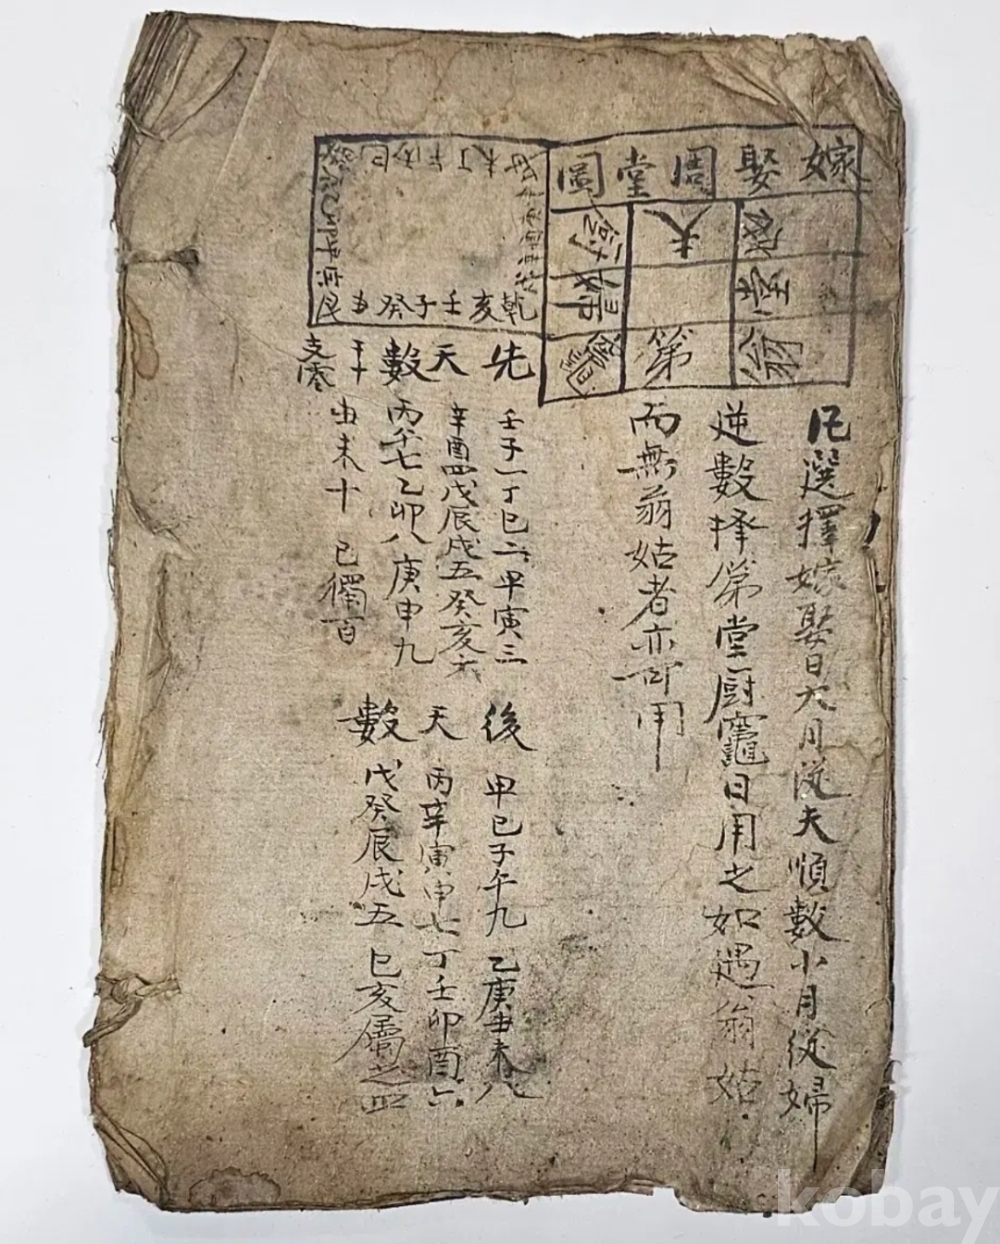 嫁娶周堂圖
夫
第
竈
翁
乾亥壬子癸丑艮
凡選擇嫁娶日大月從夫順數小月從婦
逆數擇第堂厨竈日用之如遇翁姑
而無翁姑者亦可用
先天數
壬子一丁巳二甲寅三
辛酉四戊辰戌五癸亥六
丙午七乙卯八庚申九
丑未十 己獨百
後天數
甲己子午九 乙庚丑未八
丙辛寅申七丁壬卯酉六
戊癸辰戌五 巳亥屬之四
kobay